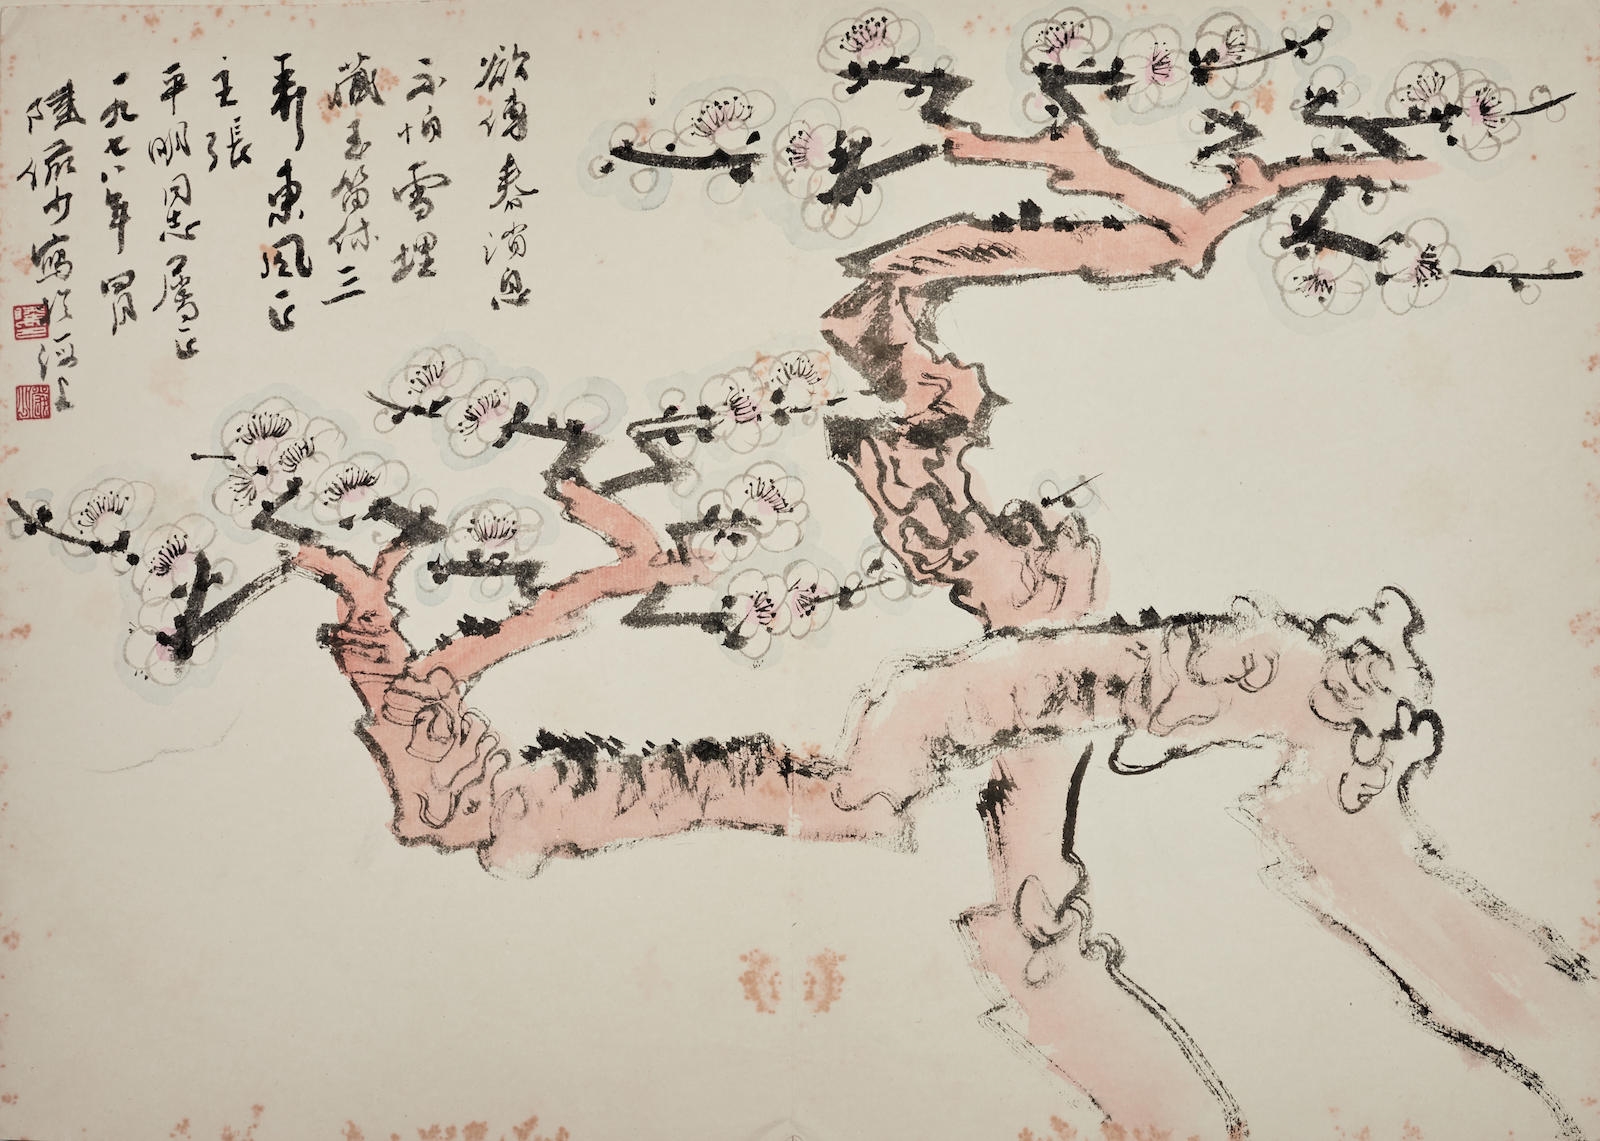 欲傳春消息
不怕雪埋
藏玉笛休三
弄東風正
主張
平明同志屬正
一九七八年四月
陸儼少寫於海上